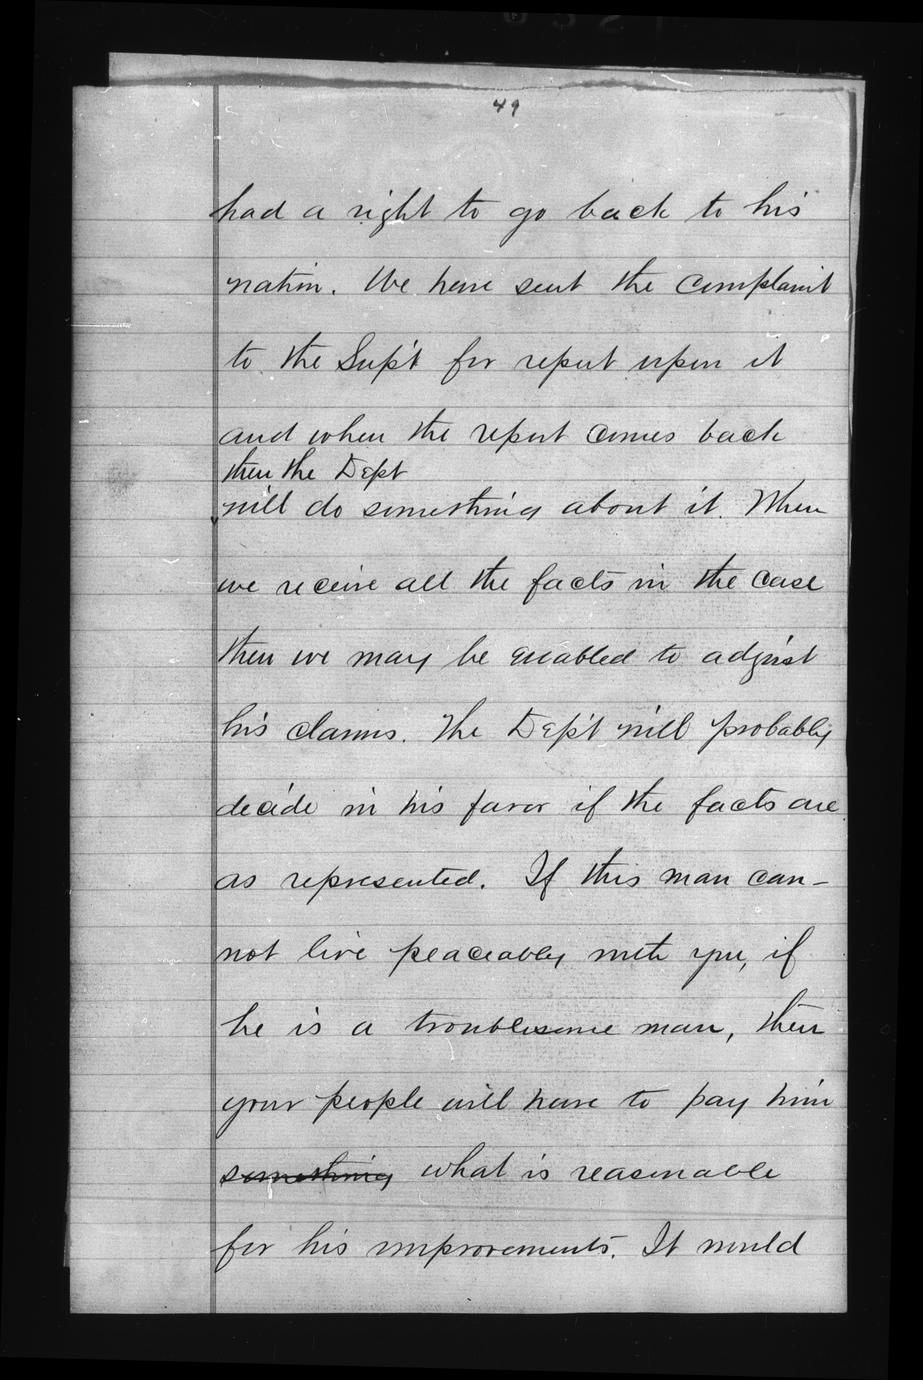 49
had a right to go back to his
nation. We have sent the complaint
to the Sup't for report upon it
and when the report comes back
then the Dept
will do something about it. When
we receive all the facts in the case
then we may be enabled to adjust
his claims. The Dep't will probably
decide in his favor if the facts are
as represented. If this man can-
not live peaceably with you, if
he is a troublesome man, then
your people will have to pay him
something what is reasonable
for his improvements. It would